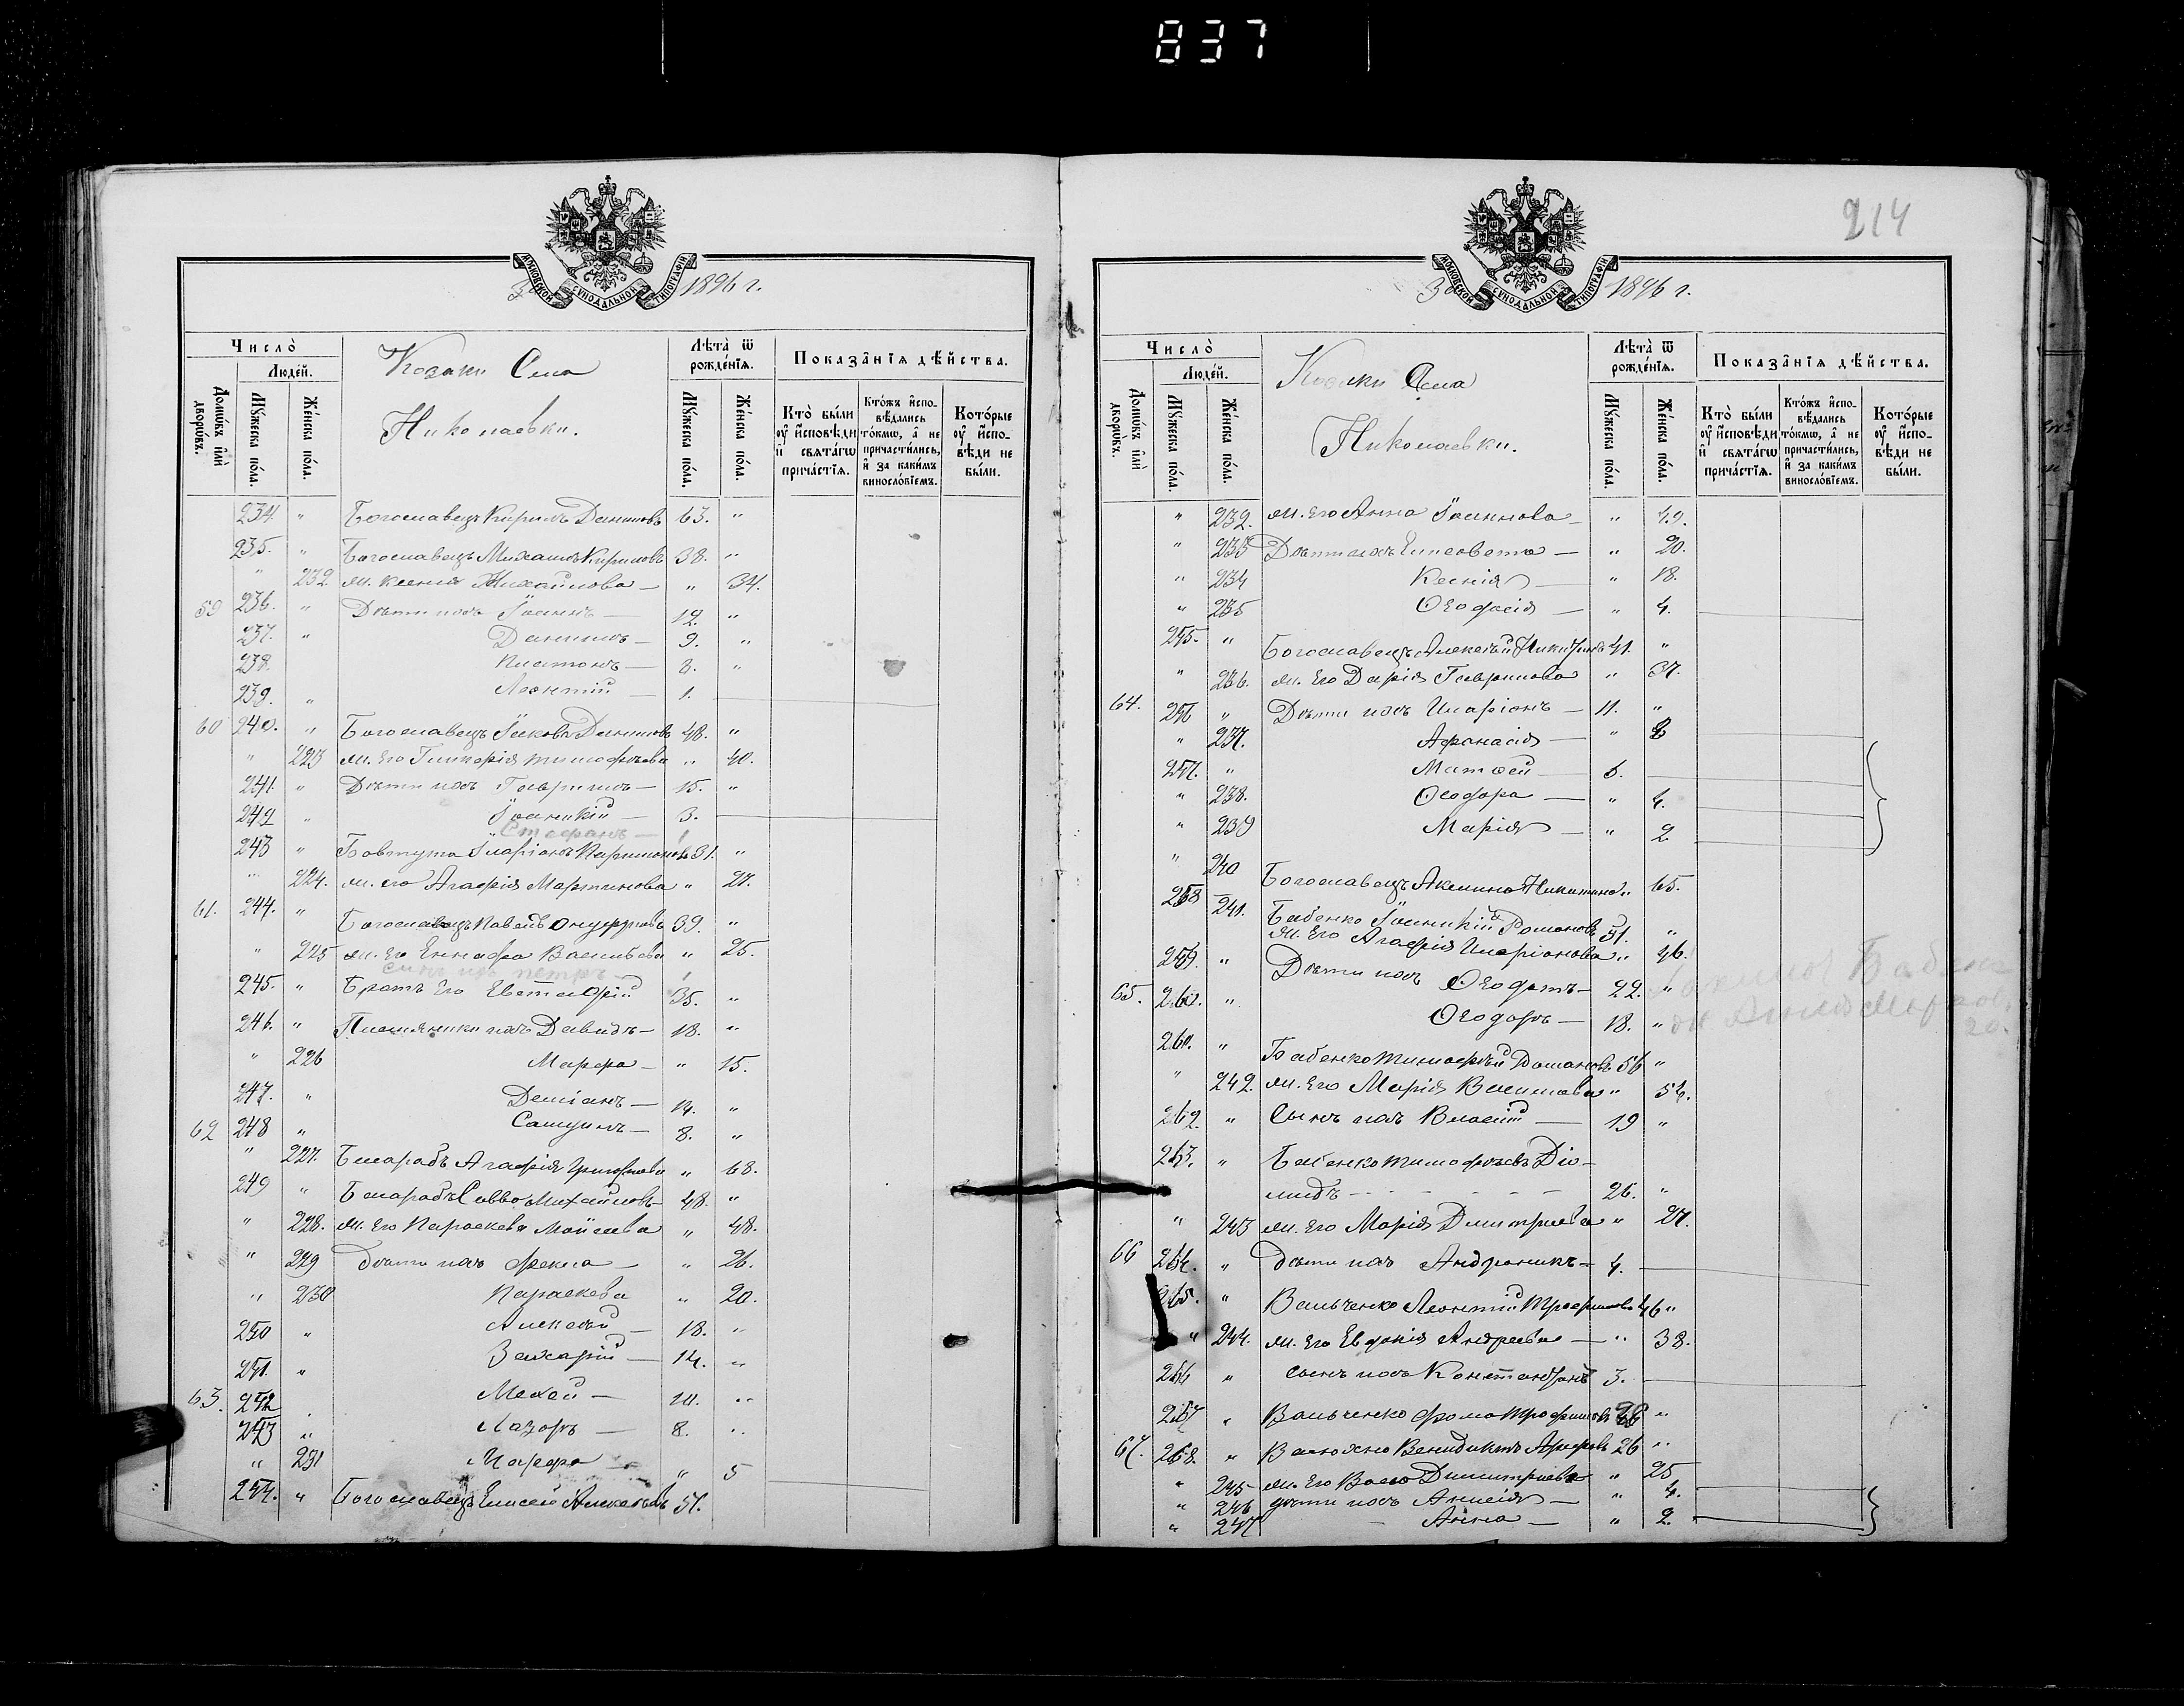 837
МОСКОВСКОЙ СѴНОДАЛЬНОЙ ТИПОГРАФІИ
За 1896 г.
Число̀
Людей.
Домѡвъ и҆лѝ дворѡвъ.
Мꙋжеска пола.
Женска пола.
Козаки Села
Николаевки.
Лѣта̀ ѿ рожденїѧ.
Мꙋжеска пола.
Женска пола.
Показанїѧ дѣйства.
Кто̀ были ᲂу҆ и҆сповѣди и҆ свѧтагѡ причастїѧ.
Ктожъ и҆сповѣдались токмѡ, а҆ не причастились, и҆ за какимъ винословїемъ.
Которые ᲂу҆ и҆сповѣди не были.
234. " Богославецъ Кирилъ Даниловъ 63. "
235. " Богославецъ Михаилъ Кириловъ 38. "
" 222 ж. Ксенія Михайлова — " 34.
59 236. " Дѣти ихъ Іоаннъ — 12. "
237. " Даниилъ — 9. "
238. Платонъ — 3. "
239. " Леонтій — 1.
60 240. " Богославецъ Іяковъ Даниловъ 48. "
" 223 ж. Его Гликерія Тимофѣева " 40.
241. " Дѣти ихъ Гавриилъ — 15. "
242 " Іоаникій — 3.
Стефанъ — 1
243 " Бовтута Іларіонъ Паримоновъ 31. "
" 224. ж. его Агафія Мартинова " 27.
61. 244. " Богославецъ Павелъ Онуфріевъ 39. "
" 225 ж. Его Еннафа Васильева " 25.
сынъ ихъ петръ — 1
245. " Братъ Его Евстафій 35. "
246. " Племяники ихъ Давидъ — 18. "
" 226 Марфа — " 15.
247. " Деміанъ — 14. "
62 248 " Самуилъ — 8. "
" 227. Бмарабъ Агафія Григорьева " 68.
249 " Бмарабъ Савва Михайловъ 48. "
" 228. ж. Его Параскева Мойсеева " 48.
" 229 дѣти ихъ Фекла — " 26.
" 230 Параскева " 20.
250 " Алексѣй — 18. "
251. " Захарій — 14. "
63. 252 Мокей — 10. "
253 " Лазарь — 8. "
" 231 Марфа — " 5
254. " Богославецъ Елисей Алексѣевъ 51.
214
МОСКОВСКОЙ СѴНОДАЛЬНОЙ ТИПОГРАФІИ
За 1896 г.
Число̀
Людей.
Домѡвъ и҆лѝ дворѡвъ.
Мꙋжеска пола.
Женска пола.
Козаки Села
Николаевки.
Лѣта̀ ѿ рожденїѧ.
Мꙋжеска пола.
Женска пола.
Показанїѧ дѣйства.
Кто̀ были ᲂу҆ и҆сповѣди и҆ свѧтагѡ причастїѧ.
Ктожъ и҆сповѣдались токмѡ, а҆ не причастились, и҆ за какимъ винословїемъ.
Которые ᲂу҆ и҆сповѣди не были.
" 232. ж. его Анна Іоаннова — " 49.
" 233 Дѣти ихъ Елисавета — " 20.
" 234 Ксенія — " 18.
" 235 Ѳеодосія — " 4.
255. " Богославецъ Алексѣй Никитинъ 41. "
" 236. ж. Его Дарія Гаврилова " 37.
64. 256 " Дѣти ихъ Иларіонъ — 11. "
" 237. Афанасія — " 8
257. " Матѳей — 6.
" 238. Ѳеодора — " 4.
" 239 Марія — " 2
" 240 Богославецъ Акилина Никитина " 65.
258 241. Бабенко Іоаникій Романовъ 51. "
ж. Его Агафія Иларіонова " 46.
259. " Дѣти ихъ Ѳеодотъ — 22. "
65. 260. " Ѳеодоръ — 18. "
Бабен
20.
261. " Бабенко Тимофѣй Романовъ 56 "
" 242. ж. Его Марія Василева " 54.
262. " Сынъ ихъ Власій — 19 "
263. " Бабенко Тимофѣевъ Діо-
мидъ - - - - - 26. "
" 243 ж. Его Марія Димитріева " 27.
66 264. " дѣти ихъ Андроникъ — 4.
265. " Вальченко Леонтій Трофимовъ 46 "
" 244. ж. Его Евдокія Андреева — " 38.
266 " сынъ ихъ Константинъ 3.
267 " Вальченко Фома Трофимовъ 28 "
67. 268. " Венидиктъ 26 "
" 245 ж. Его Васса Димитріева " 25
" 246 дѣти ихъ Анисія — " 4.
" 247 Анна — " 2.